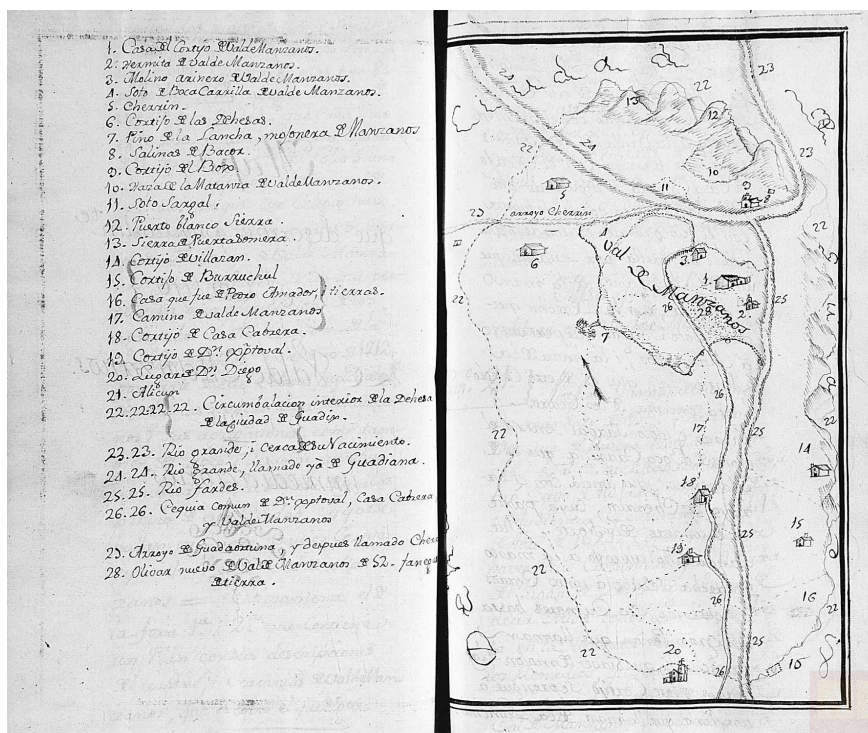 1. Casa del Cortijo de ValdeManzanos.
2. Hermita de Valde Manzanos.
3. Molino arinero de ValdeManzanos.
4. Soto de Boca Carrilla de valde Manzanos.
5. Cherrin.
6. Cortijo de las Dehesas.
7. Pino de la Lancha, mojonera de Manzanos
8. Salinas de Bacor.
9. Cortijo del Box
10. Haza de la Matanza de ValdeManzanos.
11. Soto Sargal.
12. Puerto blanco Sierra.
13. Sierra de Puertasomera.
14. Cortijo de Villazan.
15. Cortijo de Burruchul
16. Casa que fue de Pedro Amador, i tierras.
17. Camino de valde Manzanos
18. Cortijo de Casa Cabrera.
19. Cortijo de Dn. Xptoval.
20. Lugar de Dn. Diego
21. Alicun
22.22.22.22. Circumbalacion interior de la Dehesa
de la ciudad de Guadix.
23.23. Rio grande, i cerca de su Nacimiento.
24.24. Rio grande, llamado ya de Guadiana.
25.25. Rio fardes.
26.26. Cequia comun de Dn. Xptoval, Casa Cabrera
y ValdeManzanos
23. Arroyo de y despues llamado
28. Olivar nuevo de Valde Manzanos de 52.
de tierra.
23
22
13
12
22
24
23
10
11
9
8
22
5
23
arroyo Cherrin
4
6
Val de Manzanos
3
1
2
28
26
22
25
7
22
26
17
25
22
14
18
25
15
19
22
26
16
25
22
20
26
15
22